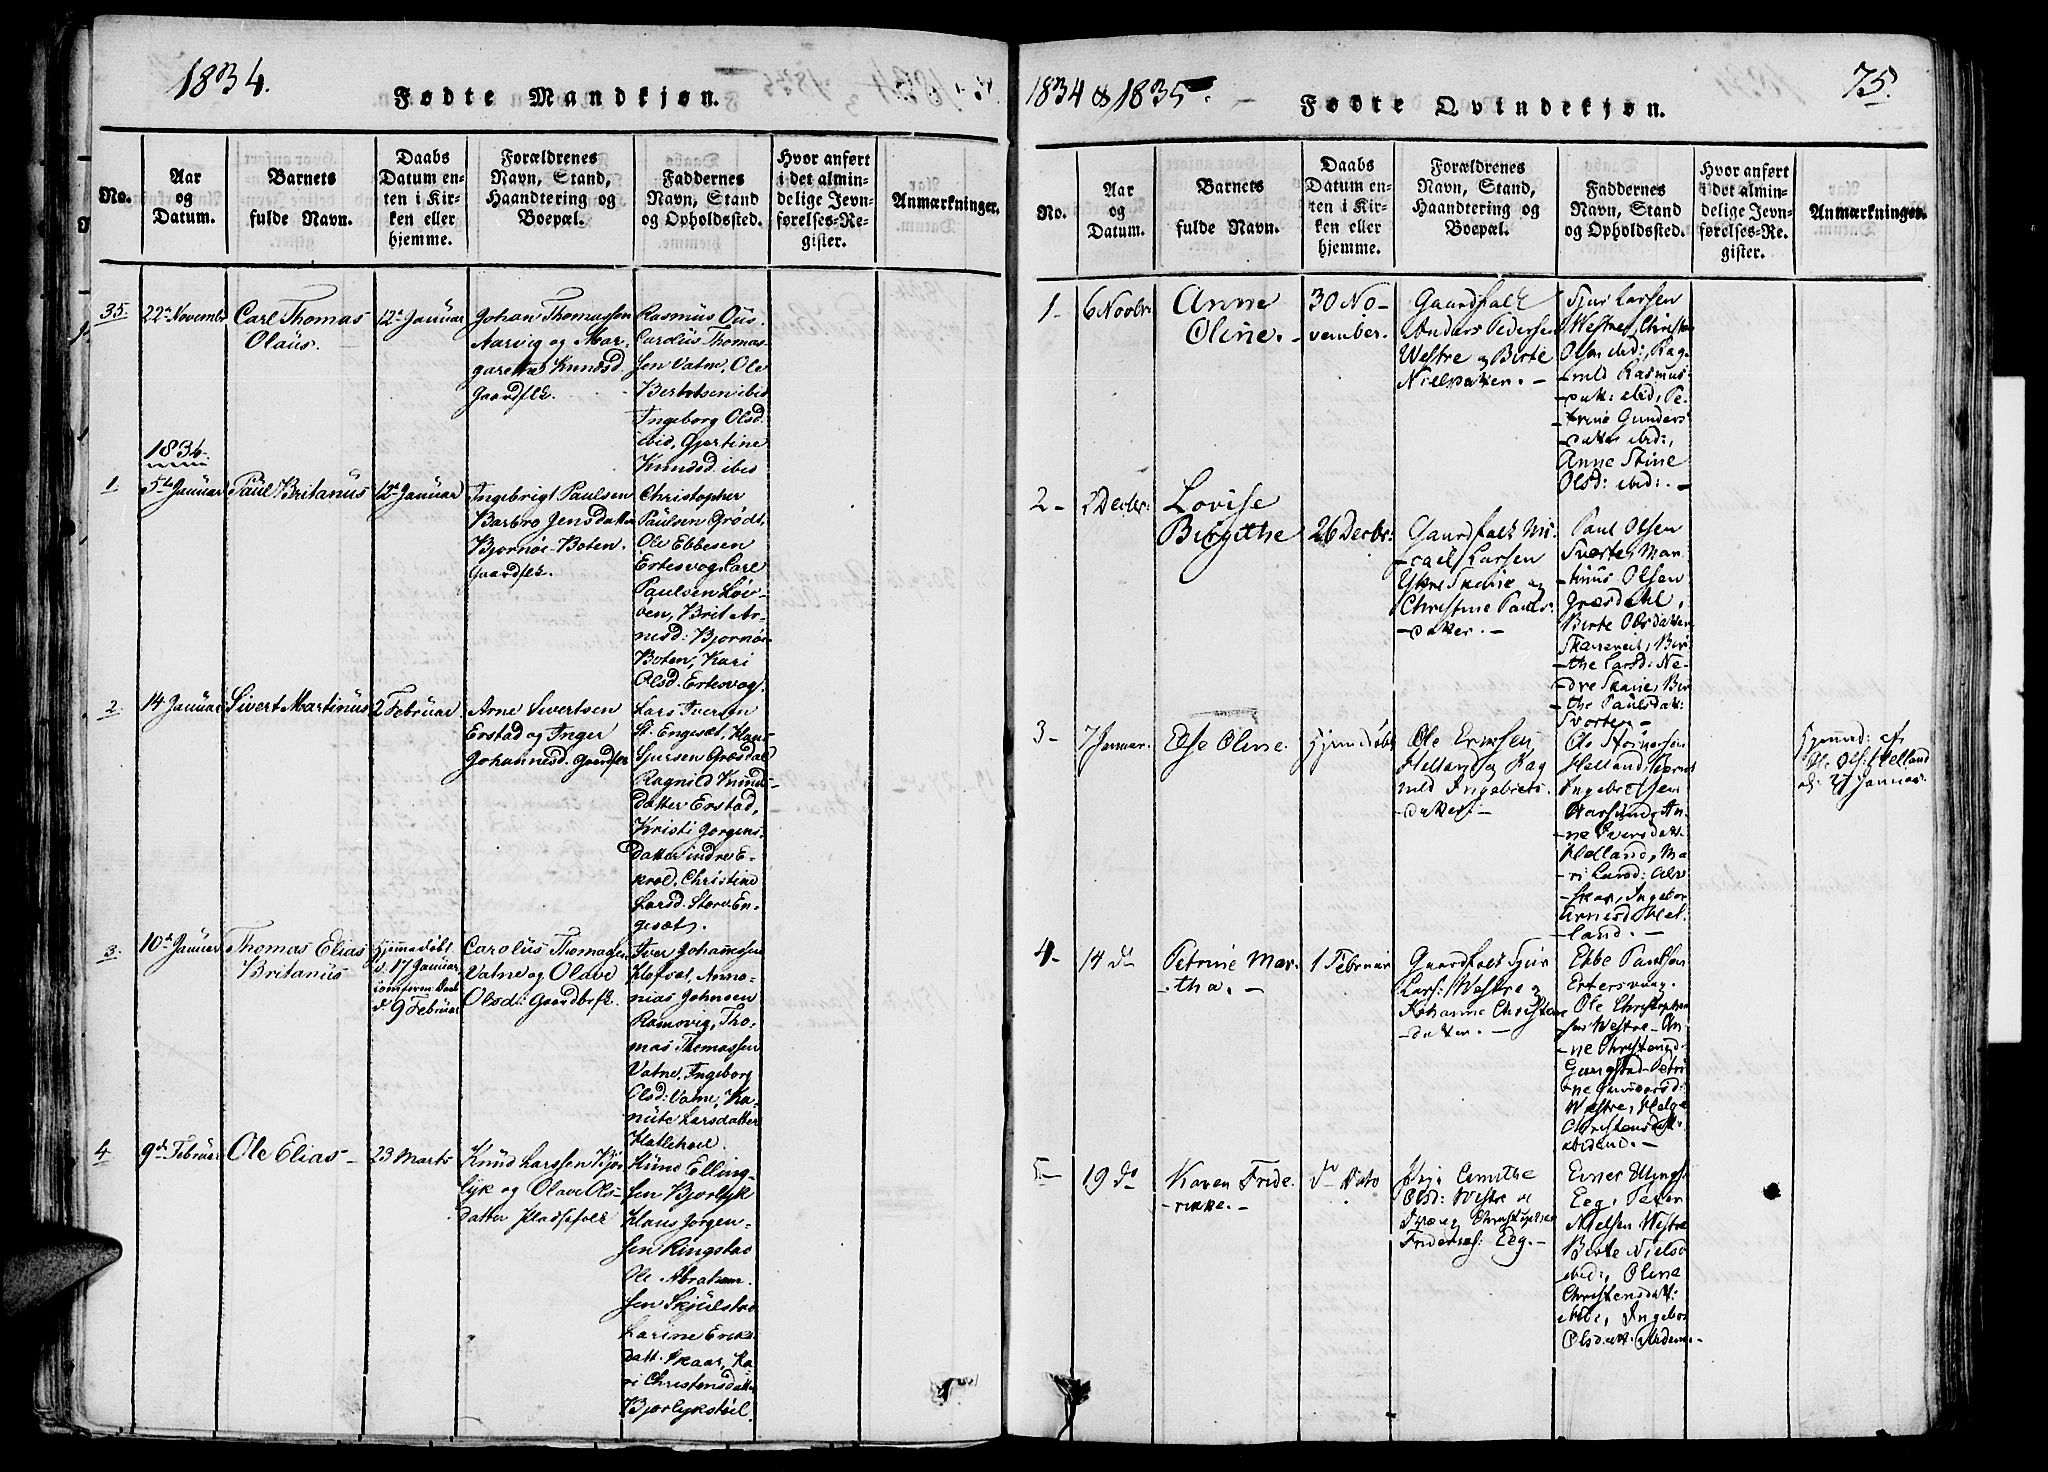 1834.
Fødte Mandkjøn.
No.
Aar
og
Datum.
Barnets
fulde Navn.
Daabs
Datum en-
ten i Kir-
ken eller
hjemme.
Forældrenes
Navn, Stand,
Haandtering og
Boepæl.
Faddernes
Navn, Stand
og Opholdssted.
Hvor anført
i det almin-
delige Jevn-
førelses-Re-
gister.
Anmærkninger.
35.
22de Novembr
Carl Thomas
Olaüs.
12te Januar
Johan Thomassen
Aarvig og Mar-
garethe Knudsd
Gaardflk.
Rasmus
Carolüs Thomas-
sen Vatne, Ole
Bertelsen ibid
Ingeborg Olsd.
ibid, Gjertine
Knudsd. ibid
1834
1.
5te Januar
Paul Britanus
12te Januar
Ingebrigt Paulsen
Barbro Jensdatter
Bjørnøe-Boten.
Gaardflk.
Christopher
Paulsen Grødt,
Ole Ebbesen
Ertesvog, Carl
Paulsen
Brit Ar-
nesd: Bjornøe
Boten, Kari
Olsd. Ertesvog.
2.
14 Januar
Sivert Martinüs
2 Februar
Arne Sivertsen
Erstad og Inger
Johannesd. Gaardflk
Lars Iversen
St. Engesæt,
Sjursen Græsdal
Ragnild Knuds-
datter Erstad,
Kristi Jørgens-
datter indre E-
Christine
Larsd. Store En-
gesæt.
3.
10de Januar
Thomas Elias
Britanus
Hjemmedøbt
d. 17 Januar
d. 9 Februar
Carolüs Thomassen
Vatne og Olave
Olsd: Gaardbrflk.
Iver Johannessen
Anna-
nias Johnsen
Ramsvig, Tho-
mas Thomassen
Vatne, Ingeborg
Olsd: Vatne, Ka-
nute Larsdatter
Hatlehoel.
4.
9de Februar
Ole Elias
23 Marts
Knüd Larssen Bjør-
lyk og Olave Ols-
datter Pladsfolk
Knud Elling-
sen Bjorlyk
Klaus Jørgen-
sen Ringstad
Ole Abraham-
sen Skjülstad
Larine Eriks-
datt. Skaar, Ka-
ri Christensdatter
Bjørlykstøil.
1834 & 1835.
75.
Fødte Qvindekjøn.
No.
Aar
og
Datum.
Barnets
fulde Navn.
Daabs
Datum en-
ten i Kir-
ken eller
hjemme.
Forældrenes
Navn, Stand,
Haandtering og
Boepæl.
Faddernes
Navn, Stand
og Opholdssted.
Hvor anført
i det almin-
delige Jevn-
førelses-Re-
gister.
Anmærkninger.
1-
6 Novbr
Anne
Oline.-
30 No-
vember.
Gaardfolk
Anders Pedersen
Westre og Birte
Nielsdatter.-
Sjur Larsen
Westre, Christen
Olsen ibid:, Rag-
-nild Rasmus-
-datt: ibid, Pe-
-trine Gunders-
-datter ibid:,
Anne Stine
Olsd: ibid:.-
2-
2 Decbr:
Lovise
Birgithe
26 Decbr:
Gaardfolk Mi-
-cael Larsen
Ytre Skarie og
Christine Pauls-
-datter.-
Paul Olsen
Svorte, Mar-
-tinus Olsen
Græsdahl,
Birte Olsdatter
Bir-
-the Larsd: Ne-
-dre Skarie, Bir-
-the Paulsdat:
Svorte.-
3-
7 Januar.
Else Oline.
Hjemmedøbt
Ole Ericsen
Helland og Rag-
-nild Ingebrigts-
-datter.-
Ole Steinersen
Helland,
Ingebr: Olsen
Aarsund, An-
-ne Iversdatt:
Helland, Ma-
-ri Larsd: Alv-
-skar, Ingebor
Arnesd: Hel-
-land.-
Hjemmed: af
Ole Ols: Helland
d: 21 Januar.
4-
14 do
Petrine Mar-
-tha.-
1 Februar
Gaardfolk Sjur
Lars: Westre og
Johanne Christens-
-datter.-
Ebbe Paulsen
Ertesvaag.
Ole Christophers-
sen Westre- An-
-ne Christensd-
Gangstad- Petri-
-ne Gundersd:
Westre, Helge
Christensdatt:
ibidend.-
5-
19 do
Karen Fride-
-rikke.-
do Dato
Pige
Olsd: Westre og
Fridericks: Eeg.-
Einer Ellings:
Eeg, Peter
Nielsen Westre
Birte Nielsd
ibid:, Oline
Christensdatt:
ibid:, Ingebor
Olsdatt: ibidem.-